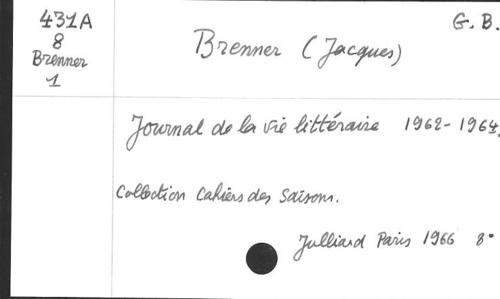 431A
8
Brenner
1
G. B.
Brenner (Jacques)
Journal de la vie littéraire 1962-1964.
Collection Cahiers des Saisons.
Julliard Paris 1966 8°